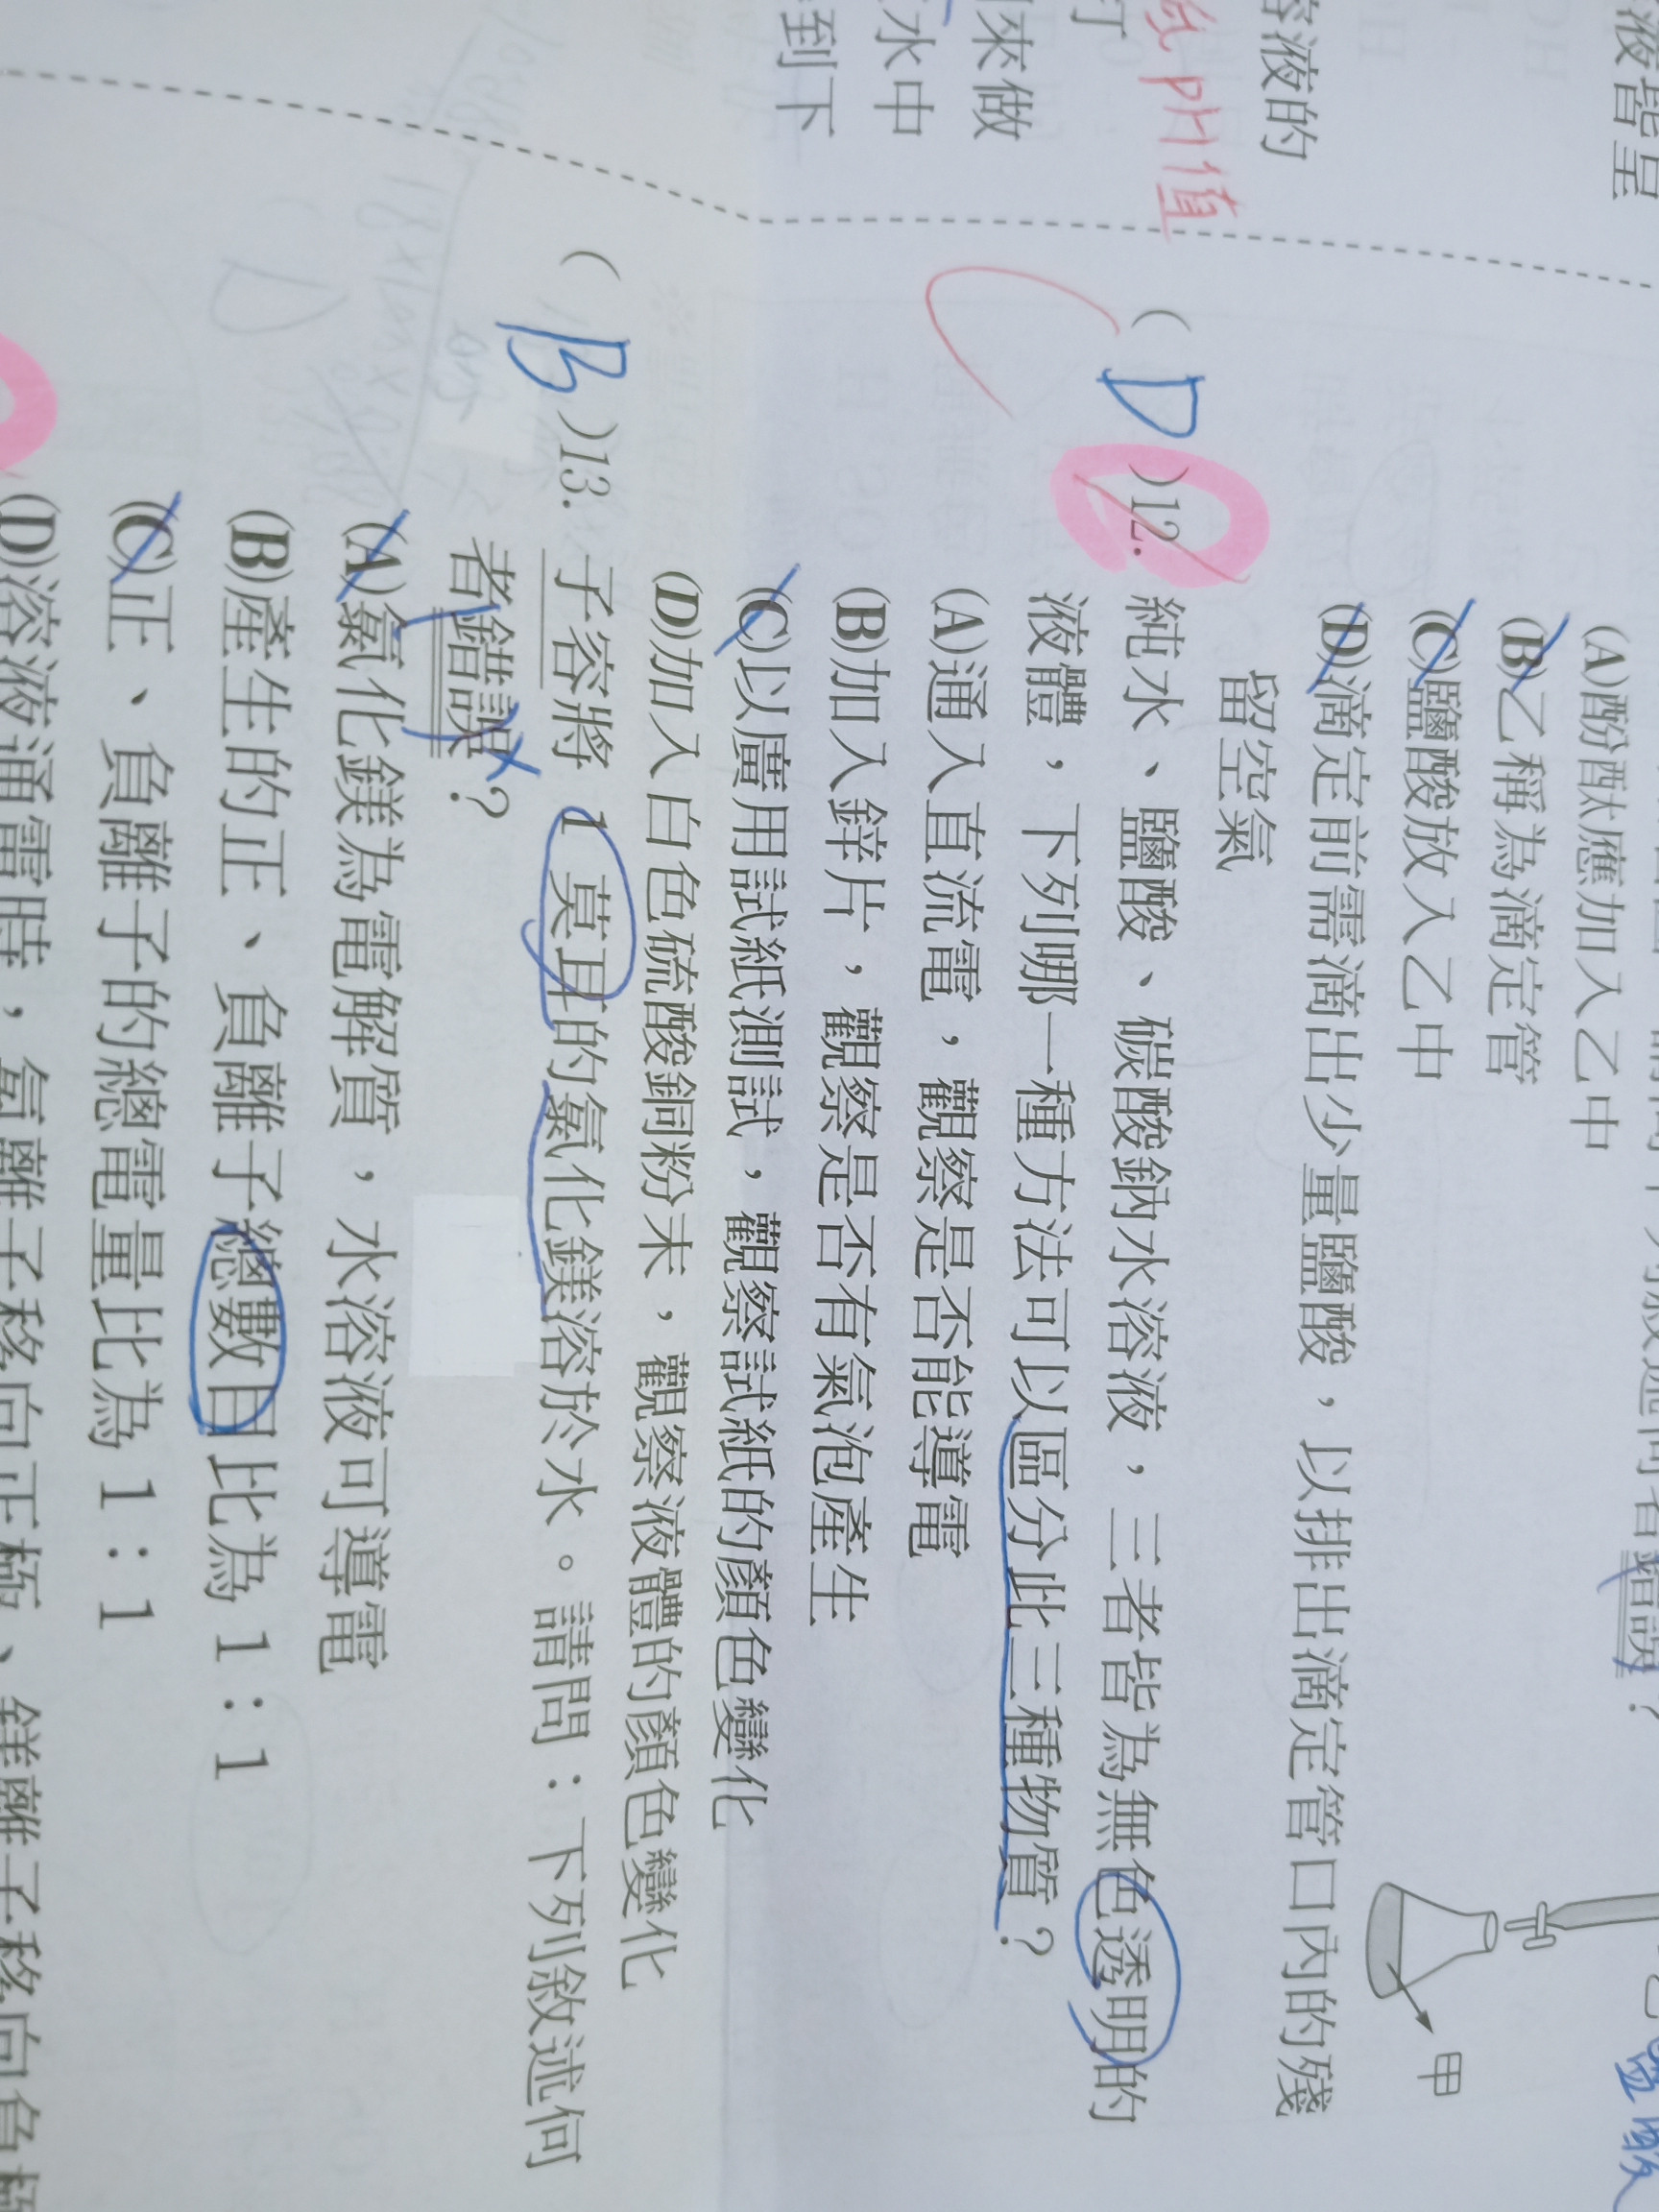 液皆呈
容液的
紙pH值
來做
水中
到下
(A)酚酞應加入乙中
(B)乙稱為滴定管
(C)鹽酸放入乙中
(D)滴定前需滴出少量鹽酸，以排出滴定管口內的殘
留空氣
錯誤？
甲
鹽酸
( D )12. 純水、鹽酸、碳酸鈉水溶液，三者皆為無色透明的
液體，下列哪一種方法可以區分此三種物質？
(A)通入直流電，觀察是否能導電
(B)加入鋅片，觀察是否有氣泡產生
(C)以廣用試紙測試，觀察試紙的顏色變化
(D)加入白色硫酸銅粉末，觀察液體的顏色變化
( B )13. 子容將 1 莫耳的氯化鎂溶於水。請問：下列敘述何
者錯誤？
(A)氯化鎂為電解質，水溶液可導電
(B)產生的正、負離子總數目比為 1：1
(C)正、負離子的總電量比為 1：1
(D)溶液通電時，氯離子移向正極、鎂離子移向負極